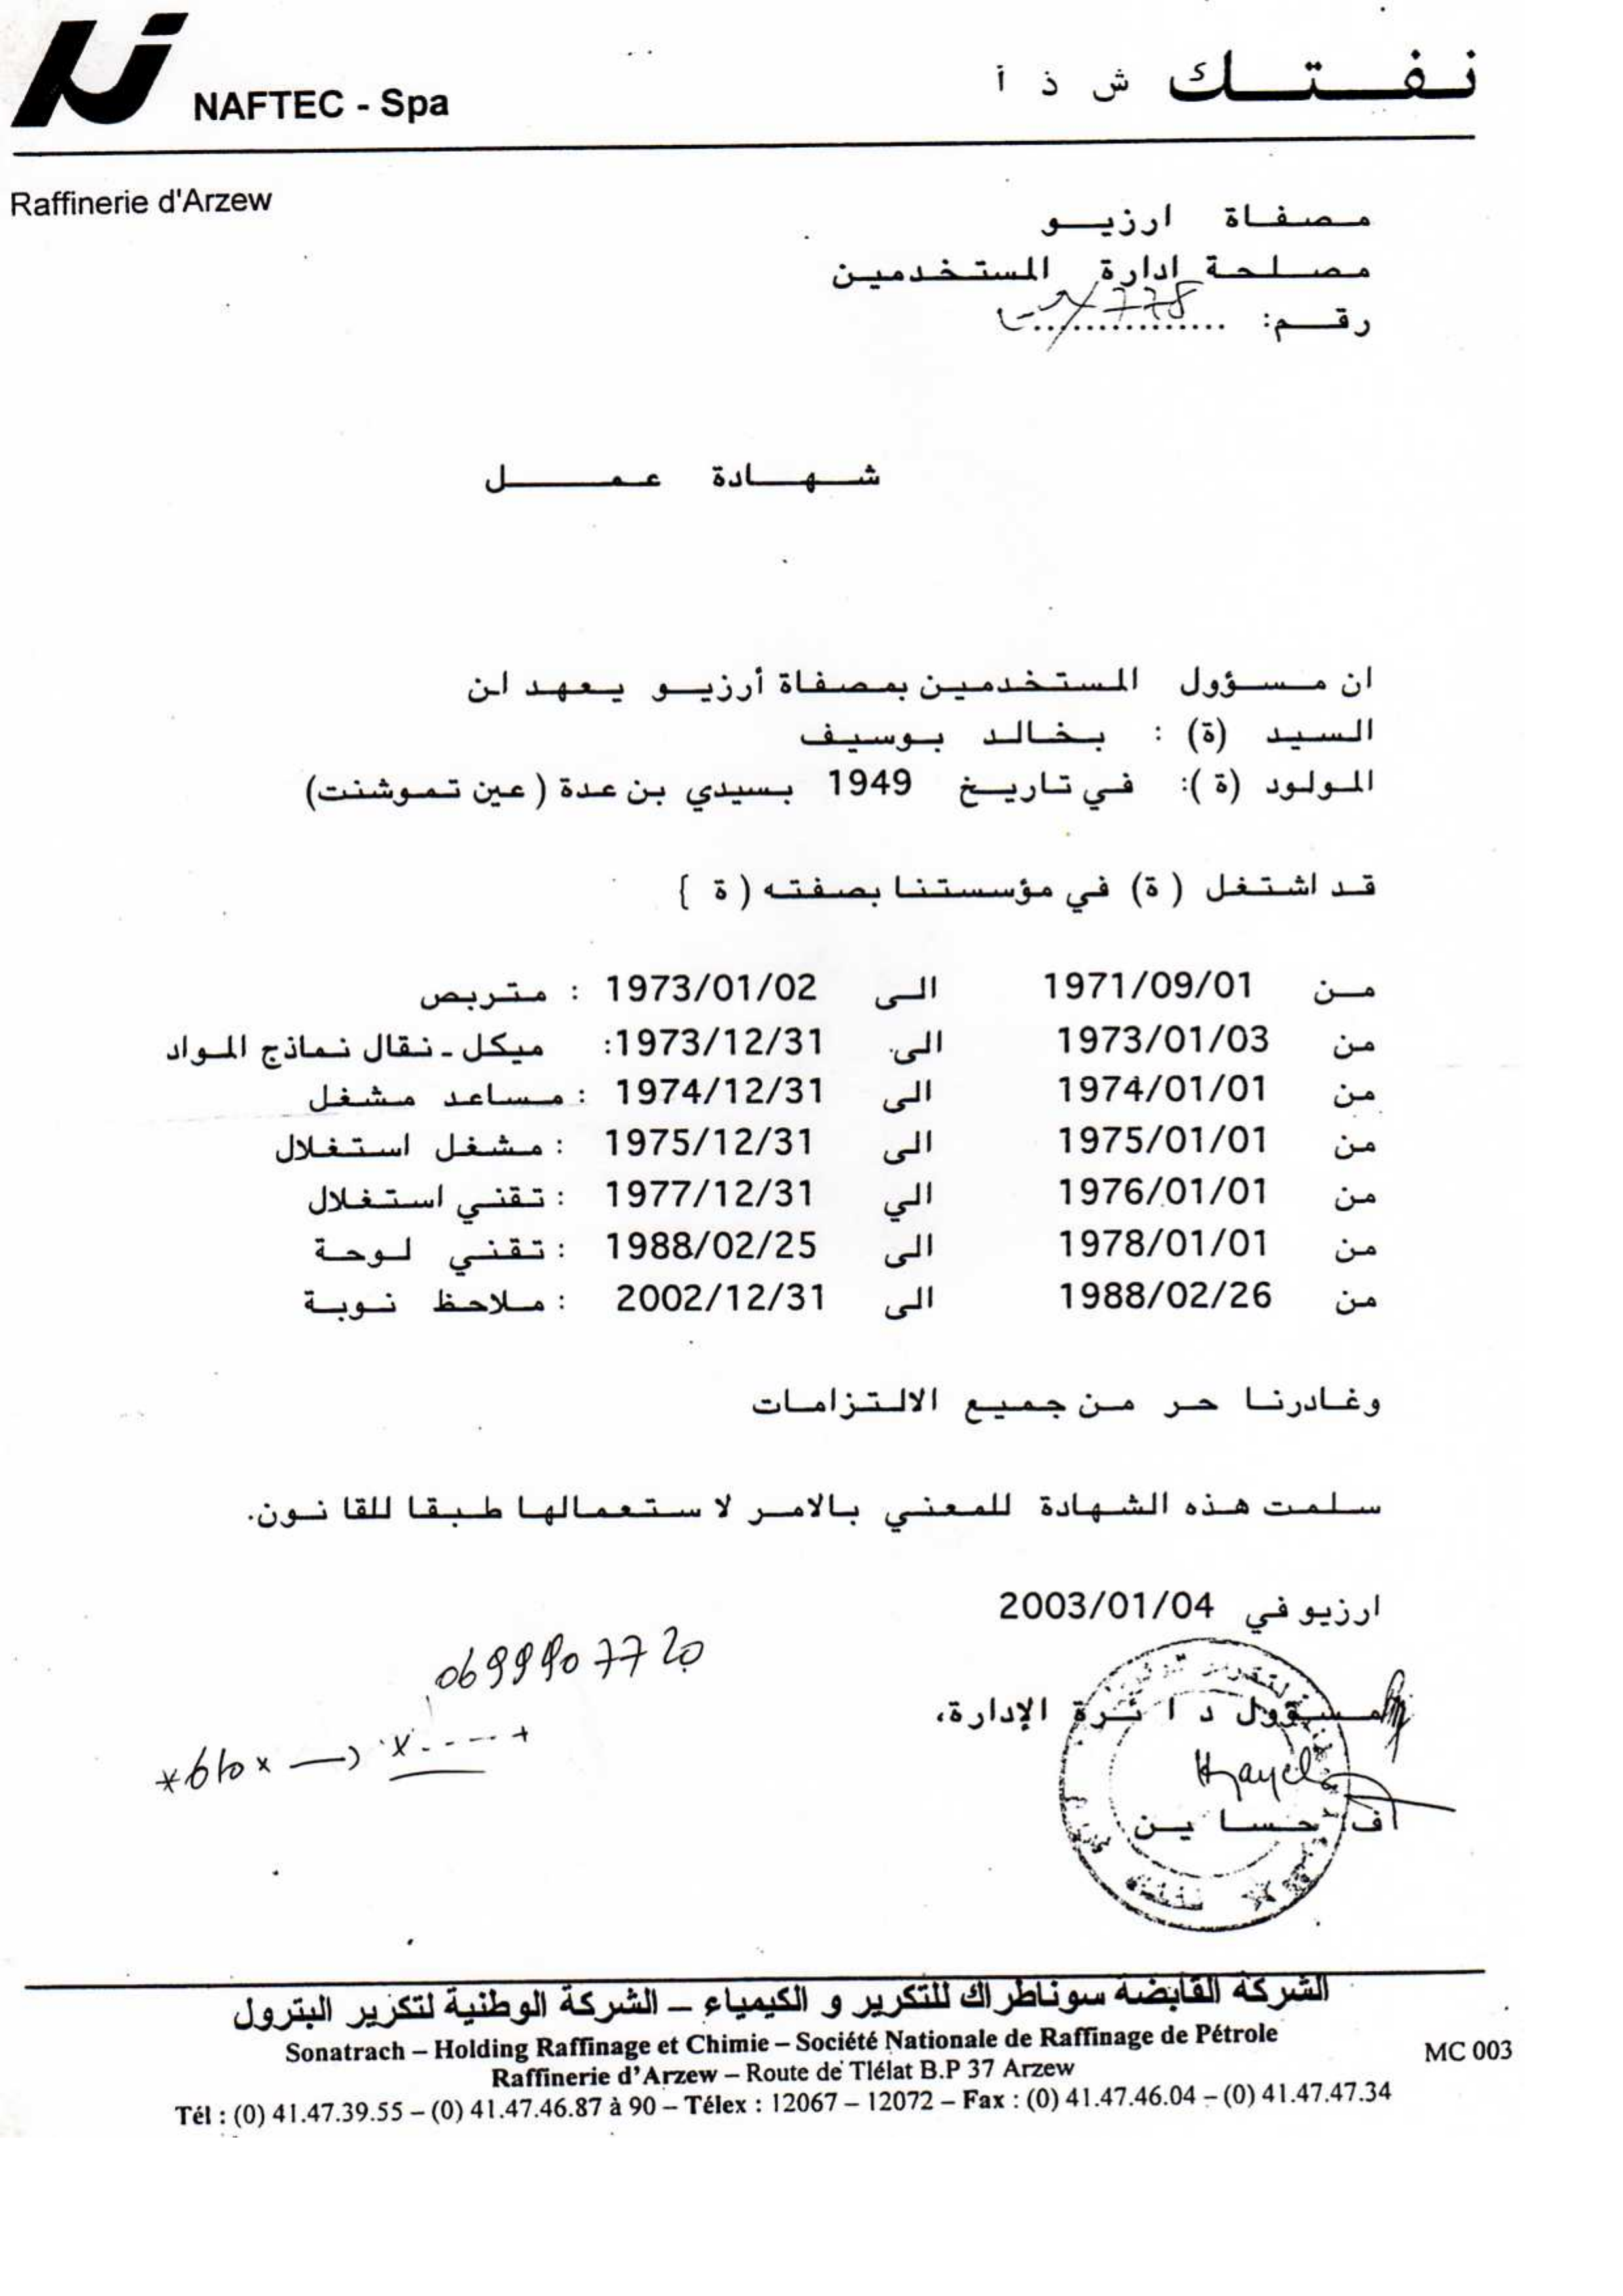 NAFTEC - Spa
نفتك ش ذ أ
Raffinerie d'Arzew
مصفاة ارزيو
مصلحة ادارة المستخدمين
رقم: ...............
شهادة عمل
ان مسؤول المستخدمين بمصفاة أرزيو يعهد ان
السيد (ة) : بخالد بوسيف
المولود (ة): في تاريخ 1949 بسيدي بن عدة (عين تموشنت)
قد اشتغل (ة) في مؤسستنا بصفته (ة }
من 1971/09/01 الى 1973/01/02 : متربص
من 1973/01/03 الى 1973/12/31: ميكل - نقال نماذج المواد
من 1974/01/01 الى 1974/12/31 : مساعد مشغل
من 1975/01/01 الى 1975/12/31 : مشغل استغلال
من 1976/01/01 الي 1977/12/31 : تقني استغلال
من 1978/01/01 الى 1988/02/25 : تقني لوحة
من 1988/02/26 الى 2002/12/31 : ملاحظ نوبة
وغادرنا حر من جميع الالتزامات
سلمت هذه الشهادة للمعني بالامر لا ستعمالها طبقا للقا نون.
ارزيو في 2003/01/04
0699907720
مسؤول د ا ئرة الإدارة،
*610x → x.----+
أف. حسا ين
الشركة القابضة سوناطراك للتكرير و الكيمياء – الشركة الوطنية لتكرير البترول
Sonatrach – Holding Raffinage et Chimie – Société Nationale de Raffinage de Pétrole
MC 003
Raffinerie d'Arzew – Route de Tlélat B.P 37 Arzew
Tél : (0) 41.47.39.55 – (0) 41.47.46.87 à 90 – Télex : 12067 – 12072 – Fax : (0) 41.47.46.04 – (0) 41.47.47.34